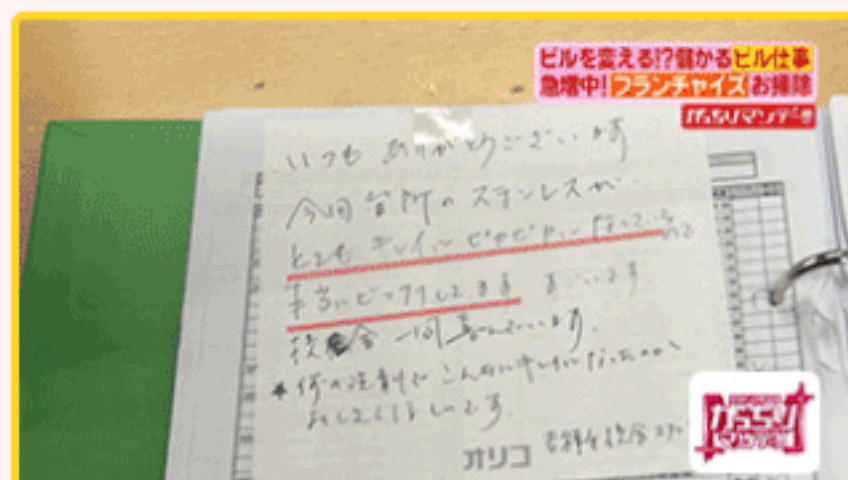 ビルを変える!?儲かるビル仕事
急増中!フランチャイズお掃除
がっちりマンデー!!
いつもありがとうございます
今回台所のステンレスが
とてもキレイにピカピカになっているので
本当にビックリしてます すごいです
一同喜んでいます。
*何の洗剤でこんなにキレイになったのか、
おしえてほしいです。
オリコ
がっちりマンデー!!